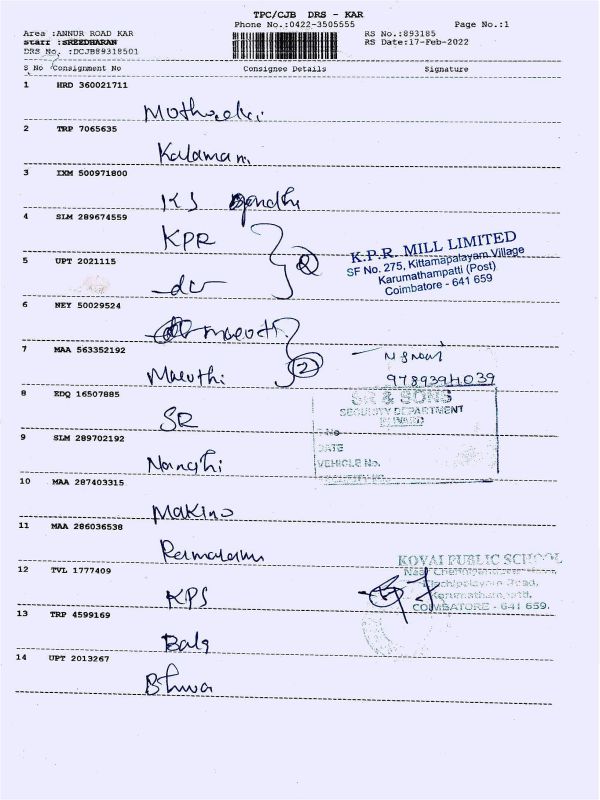 TPC/CJB DRS - KAR
Phone No.:0422-3505555 Page No.:1
Area :ANNUR ROAD KAR RS No.:893185
Starr :SREEDHARAN RS Date:17-Feb-2022
DRS No. :DCJB89318501
S No Consignment No Consignee Details Signature
1 HRD 360021711
2 TRP 7065635
Kalamani
3 IXM 500971800
KS Gandhi
4 SLM 289674559
KPR 2
K.P.R. MILL LIMITED
SF No. 275, Kittamapalayam Village
Karumathampatti (Post)
Coimbatore - 641 659
5 UPT 2021115
-do-
6 NEY 50029524
maruti
7 MAA 563352192
Maruthi 2
9789394039
8 EDQ 16507885
SR
SR & SONS
SECURITY DEPARTMENT
INWARD
DATE
VEHICLE No.
9 SLM 289702192
Nanghi
10 MAA 287403315
Makino
11 MAA 286036538
KOVAI PUBLIC SCHOOL
12 TVL 1777409
Road,
COIMBATORE - 641 659.
KPS
13 TRP 4599169
Balg
14 UPT 2013267
Bhuva